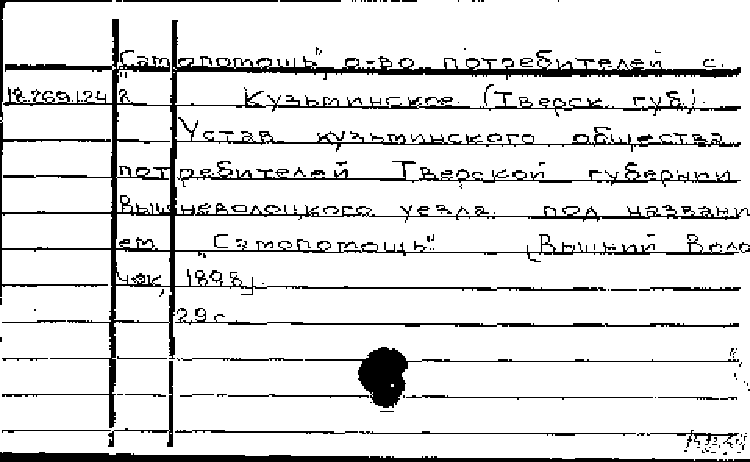 "Самопомощь", о-во потребителей с.
18.269.124 а Кузьминское (Тверск. губ.).
Устав кузьминского общества
потребителей Тверской губернии
Вышневолоцкого уезда под названи
ем „Самопомощь" [Вышний Воло
чек, 1898].
29 с